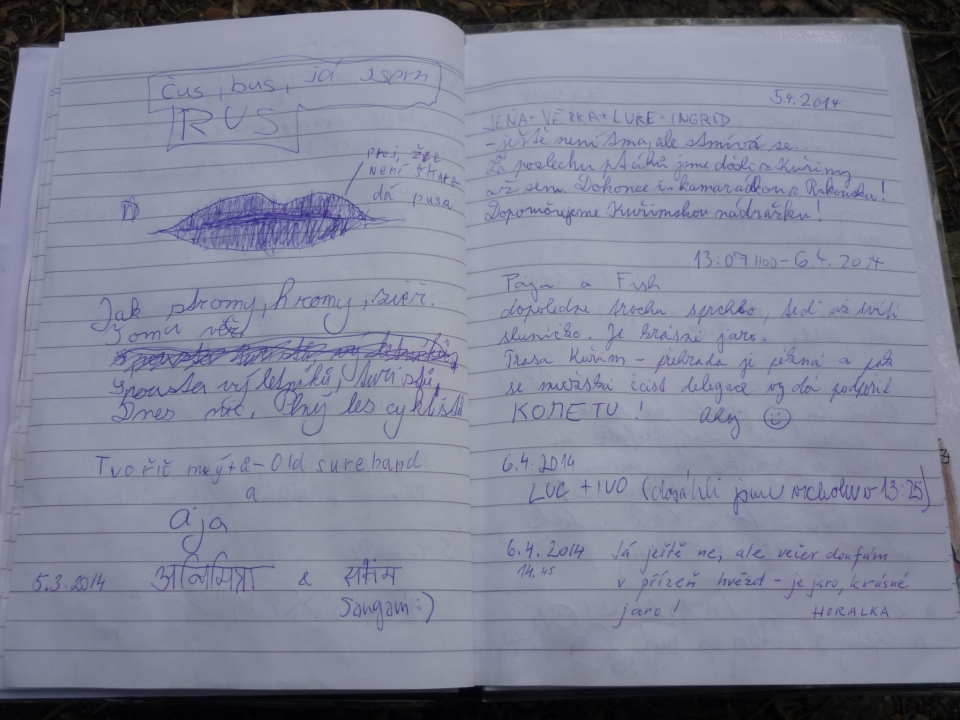 čus, bus, já jsem
RUS
není
dá pusa
Jak stromy, hromy, zvěř.
Tomu věř
Spousta výletníků, turistů,
Dnes nic. Plný les cyklistů
Tvořič mýtů - Old surehand
a
Ája
5.3.2014 अनिमित्रा & संगम
Sangam :)
5.4.2014
JEŇA + VERKA + LUKE + INGRID
- ještě není tma, ale stmívá se...
Za poslechu ptáků jsme došli z Kuřimy
až sem. Dokonce i s kamarádkou z Rakouska!
Doporučujeme Kuřimskou nádražku!
13:07 HOD - 6.4. 2014
Pája a Fish
dopoledne trochu sprchlo, teď už svítí
sluníčko. Je krásné jaro.
Trasa Kuřim - přehrada je pěkná a pak
se část delegace
KOMETU! Ahoj
6.4.2014
LUC + IVO (dosáhli jsme vrcholu v 13:25)
6.4.2014 Já ještě ne, ale večer doufám
14.45 v přízeň hvězd - je jaro, krásné
jaro! HORALKA